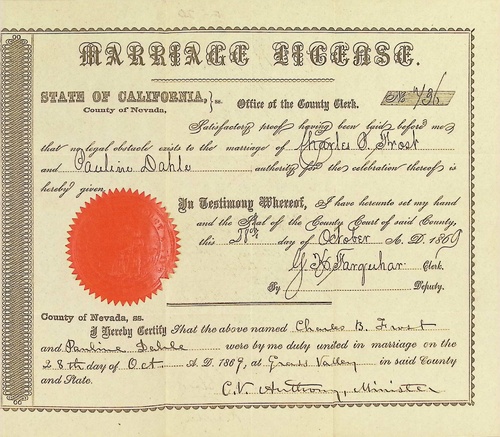 MARRIAGE LICENSE.
STATE OF CALIFORNIA, } ss.
County of Nevada,
Office of the County Clerk.
No 736
Satisfactory proof having been laid before me
that no legal obstacle exists to the marriage of Charles B. Frost
and Pauline Dahle authority for the celebration thereof is
hereby given.
In Testimony Whereof, I have hereunto set my hand
and the Seal of the County Court of said County,
this 28th day of October A. D. 1869
G. K. Farquhar Clerk.
By Deputy.
County of Nevada, ss.
I Hereby Certify That the above named Charles B. Frost
and Pauline Dahle were by me duly united in marriage on the
28th day of Oct. A. D. 1869, at Grass Valley in said County
and State.
C. V. Anthony, Minister